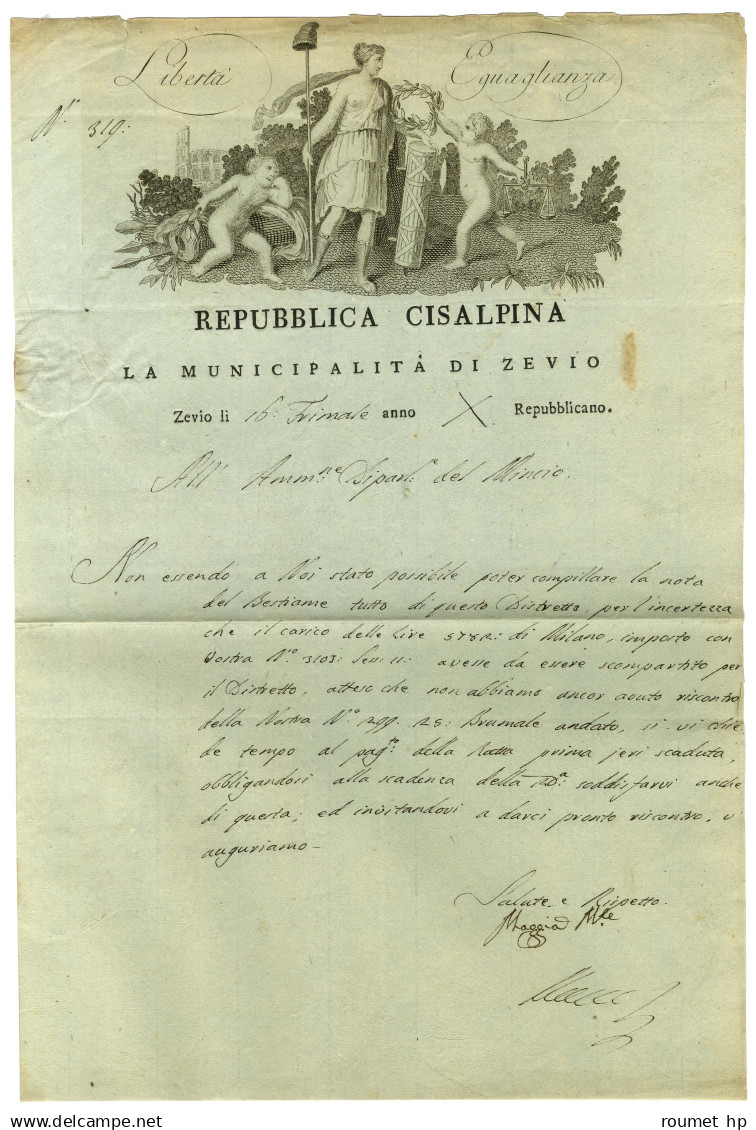 Libertà Eguaglianza
N.° 319:
REPUBBLICA CISALPINA
LA MUNICIPALITÁ DI ZEVIO
Zevio li 16: Frimale anno X Repubblicano.
All' Amm:ne Dipart:e del Mincio.
Non essendo a Noi stato possibile poter compillare la nota
del Bestiame tutto di questo Distretto, per l'incertezza
che il carico delle Lire 5782: di Milano, imposto con
Vostra N.o 3103: Sen: 11: avesse da essere scompartito per
il Distretto, atteso che non abbiamo ancor avuto riscontro
della Nostra N.o 299. 25: Brumale andato, si vi chie
de tempo al pag:to della Ratta prima jeri scaduta,
obbligandosi alla scadenza della IIDa: soddisfarvi anche
di questa; ed invitandovi a darci pronto riscontro, v'
auguriamo -
Salute e Rispetto.
Maggia
roumet hp